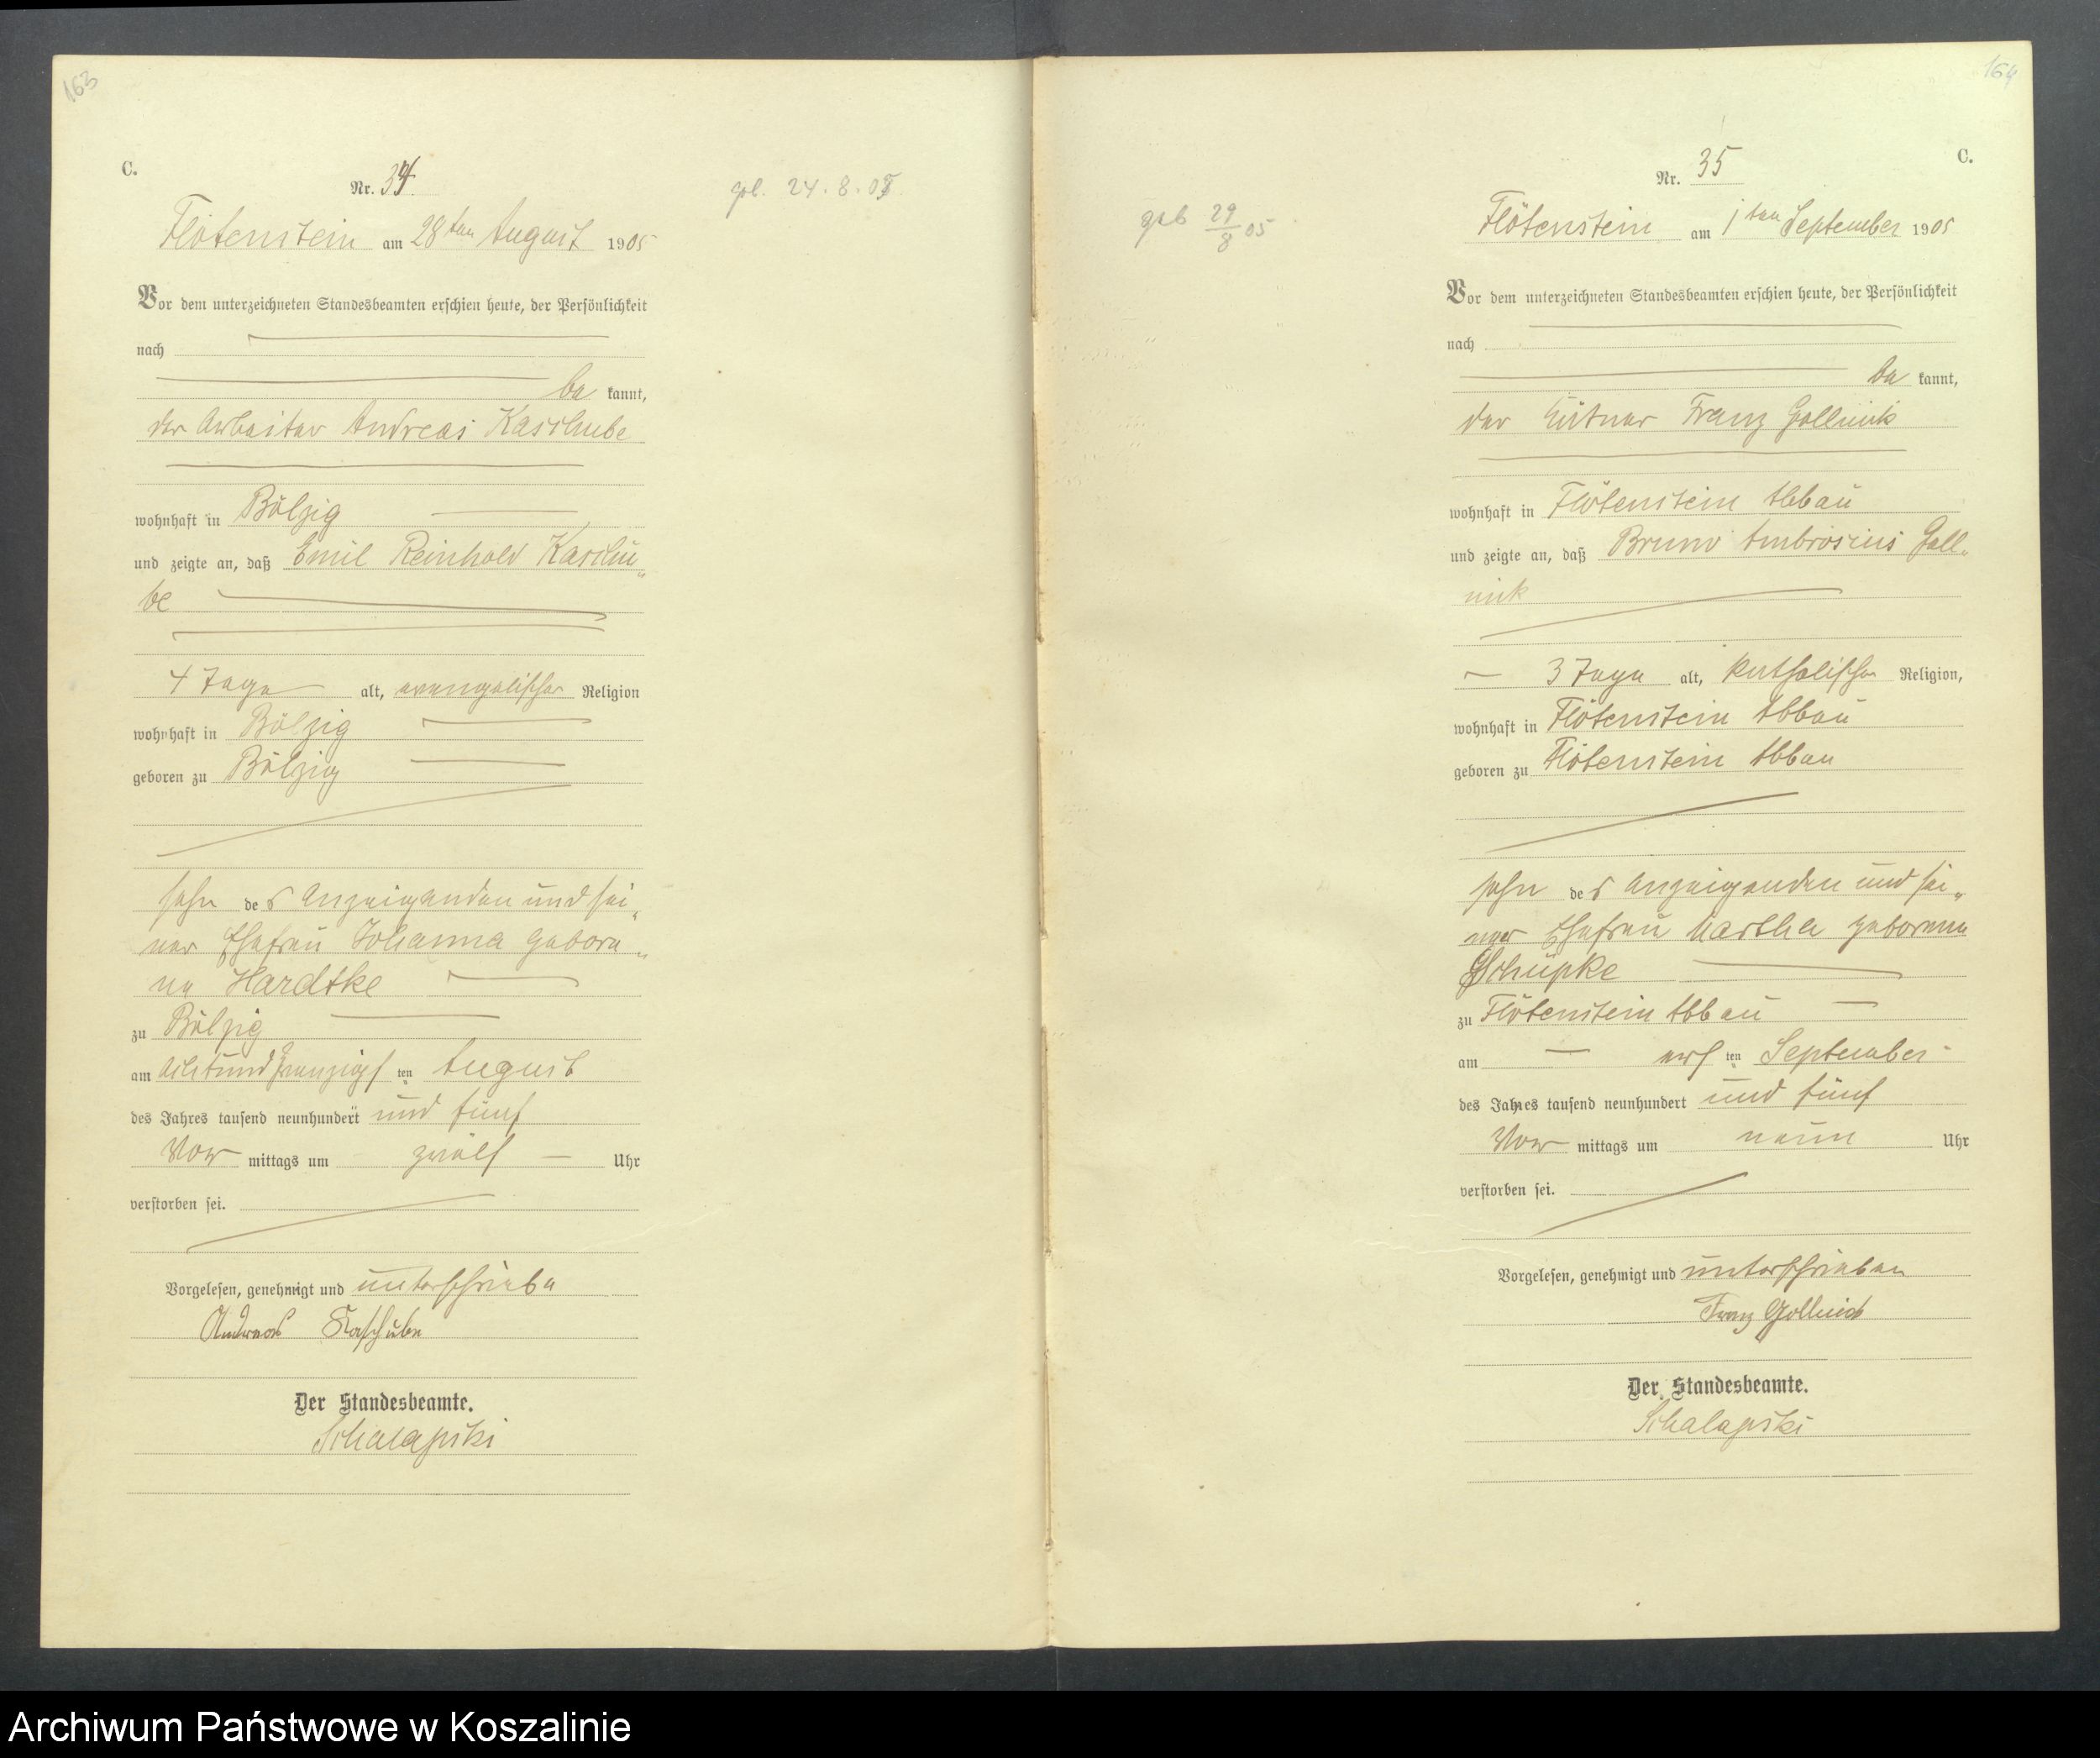 163
C.
Nr. 34
geb. 24.8.05
Flötenstein am 28ten August 1905
Vor dem unterzeichneten Standesbeamten erschien heute, der Persönlichkeit
nach
be kannt,
der Arbeiter Andreas Kaschube
wohnhaft in Bölzig
und zeigte an, daß Emil Reinhold Kaschu„
be
4 Tage alt, evangelischer Religion
wohnhaft in Bölzig
geboren zu Bölzig
Sohn des Anzeigenden und sei„
ner Ehefrau Johanna gebore„
ne Hardtke
zu Bölzig
am achtundzwanzigsten August
des Jahres tausend neunhundert und fünf
Vor mittags um zwölf Uhr
verstorben sei.
Vorgelesen, genehmigt und unterschrieben
Andreas Kaschube
Der Standesbeamte.
Schalapski
164
C.
Nr. 35
geb 29/8 05
Flötenstein am 1ten September 1905
Vor dem unterzeichneten Standesbeamten erschien heute, der Persönlichkeit
nach
be kannt,
der Franz Gollnick
wohnhaft in Flötenstein Abbau
und zeigte an, daß Bruno Ambrosius Goll„
nick
3 Tage alt, katholischer Religion,
wohnhaft in Flötenstein Abbau
geboren zu Flötenstein Abbau
Sohn des Anzeigenden und sei„
ner Ehefrau Martha geborene
Schüpke
zu Flötenstein Abbau
am ersten September
des Jahres tausend neunhundert und fünf
Vor mittags um neun Uhr
verstorben sei.
Vorgelesen, genehmigt und unterschrieben
Franz Gollnick
Der Standesbeamte.
Schalapski
Archiwum Państwowe w Koszalinie